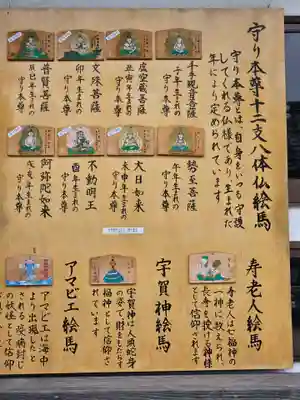 守り本尊十二支八体仏絵馬
守り本尊とは自身をいつも守護
してくれる仏様であり、生まれた
年により定められています。
千手観音菩薩
子年生まれの
守り本尊
虚空蔵菩薩
丑寅年生まれの
守り本尊
文殊菩薩
卯年生まれの
守り本尊
普賢菩薩
辰巳年生まれの
守り本尊
勢至菩薩
午年生まれの
守り本尊
大日如来
未申年生まれの
守り本尊
不動明王
酉年生まれの
守り本尊
阿弥陀如来
戌亥年生まれの
守り本尊
寿老人絵馬
寿老人は七福神の
一神に数えられ、
長寿を授ける神様
として信仰されます
宇賀神絵馬
宇賀神は人頭蛇身
の姿で、財をもたらす
福神として信仰さ
れています
アマビエ絵馬
アマビエは海中
より出現したと
される疫病封じ
の妖怪として信仰